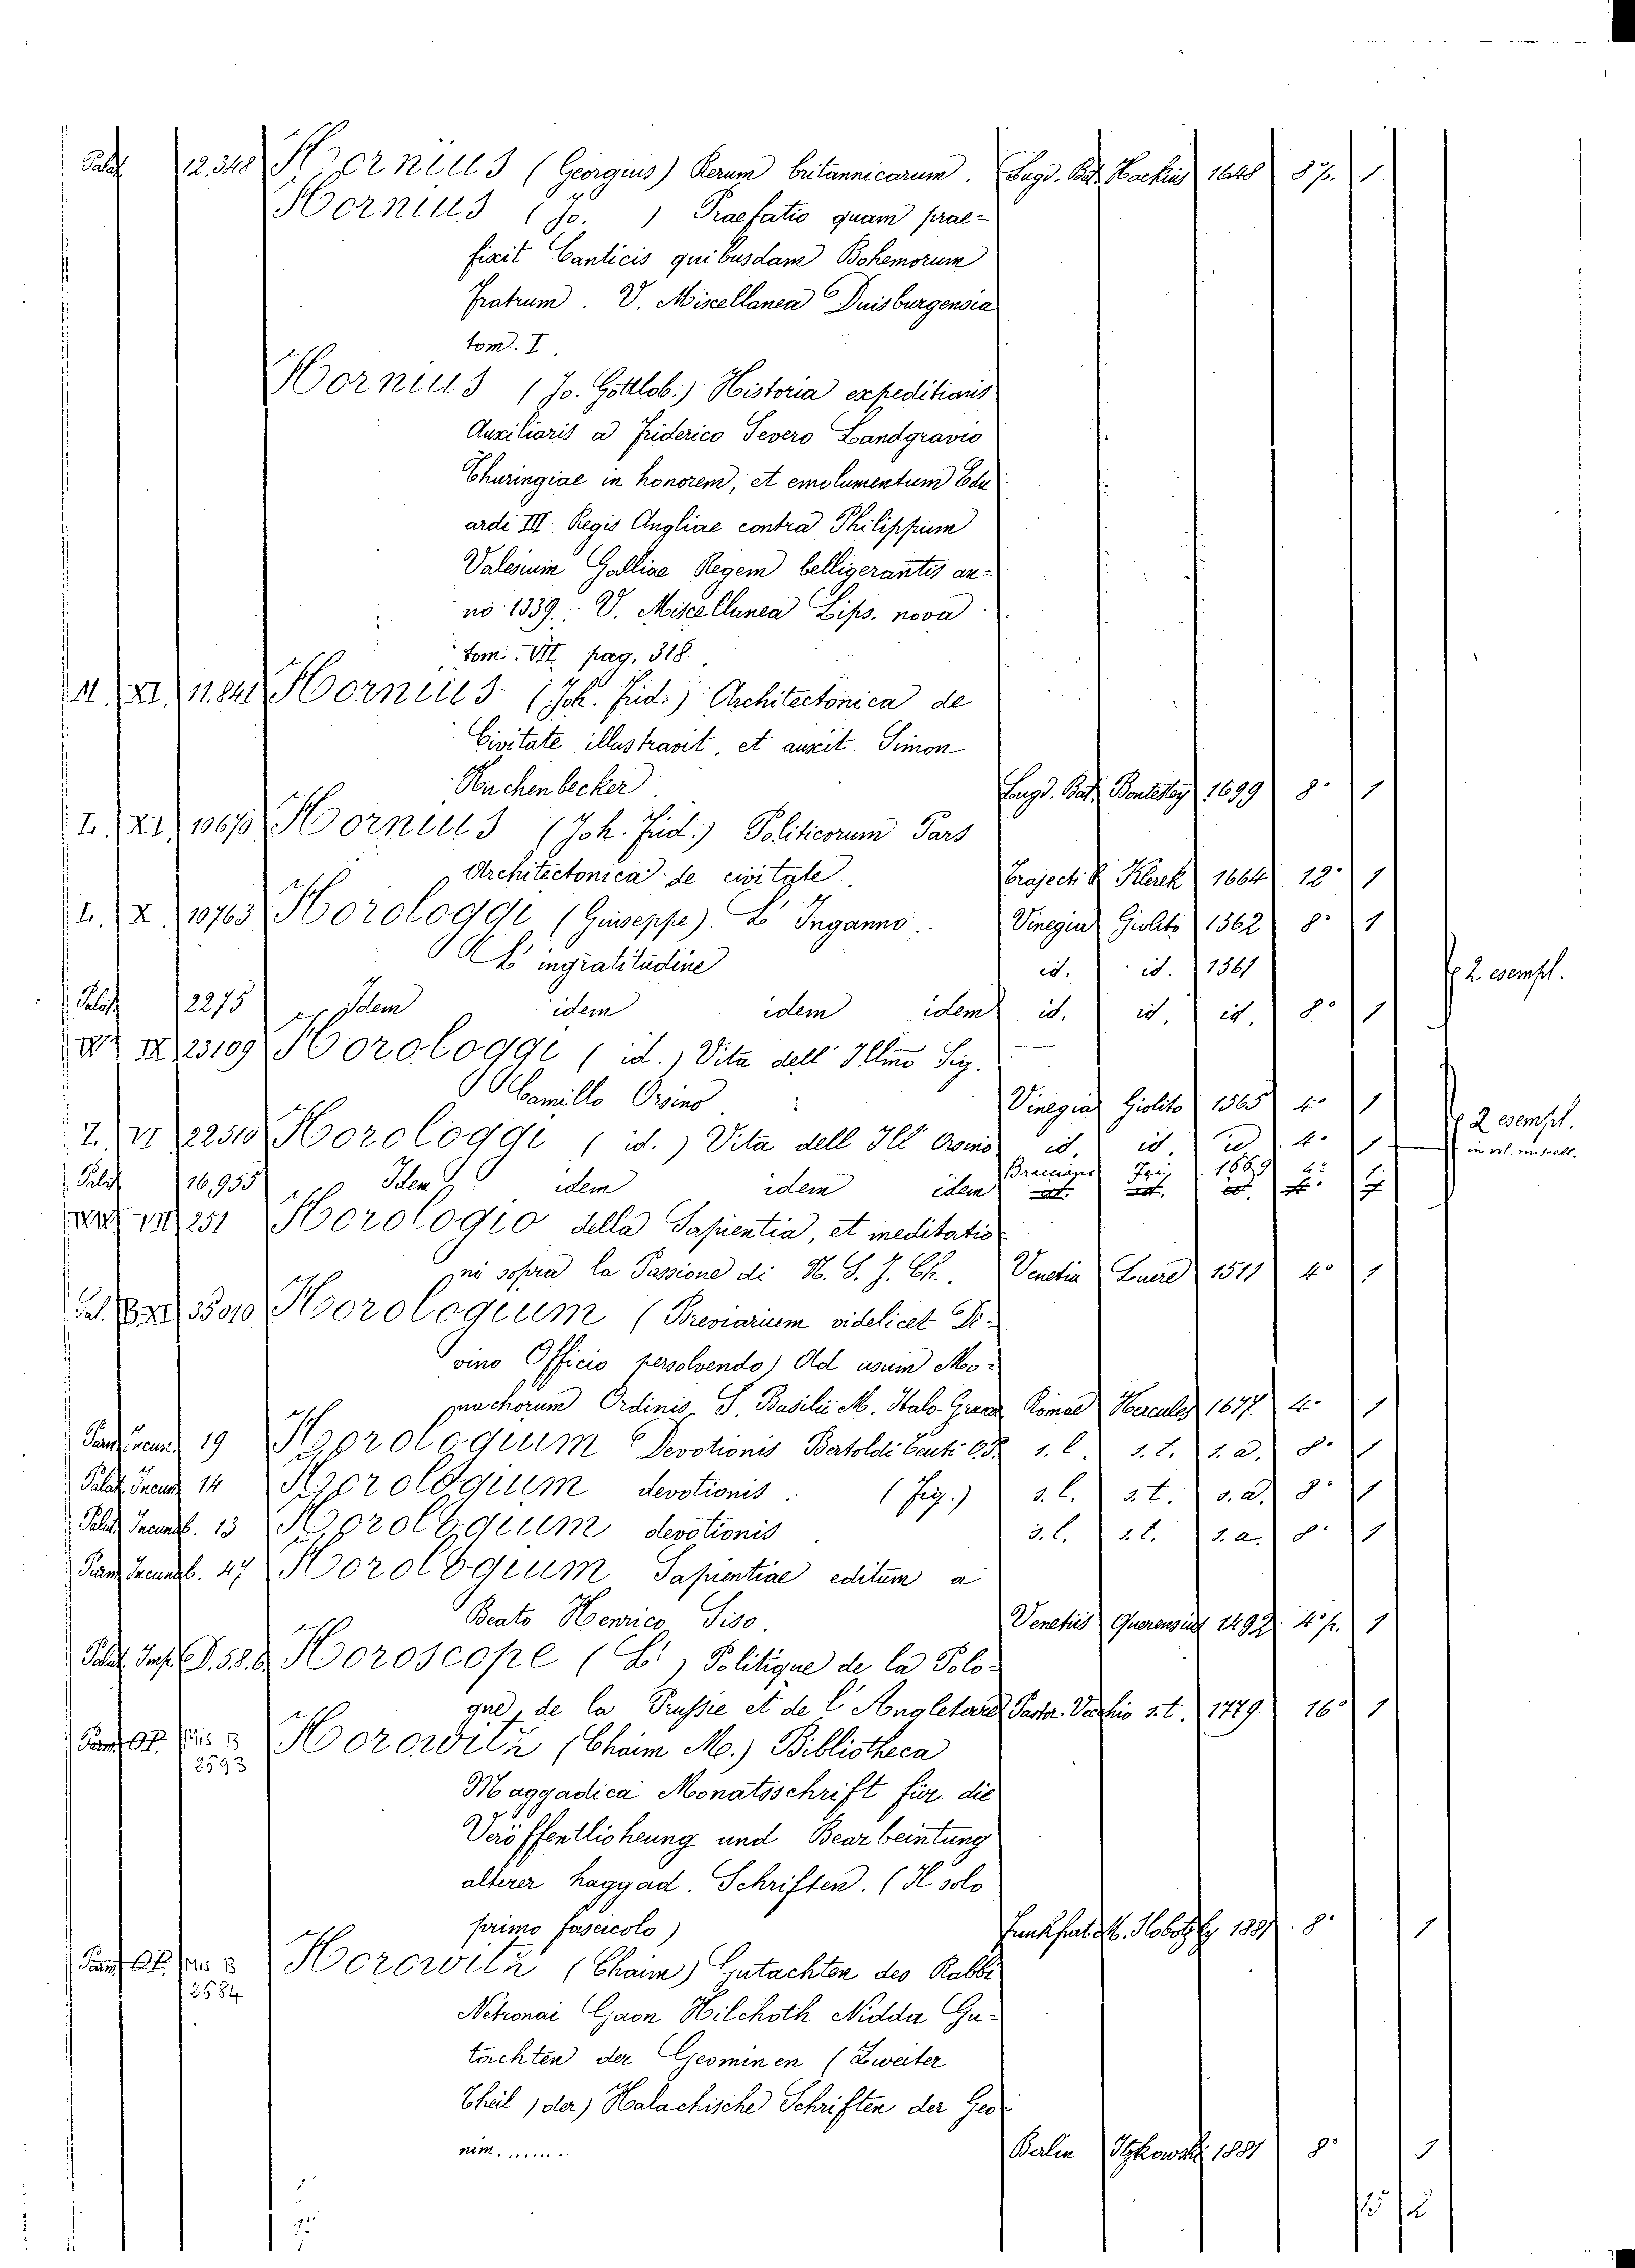 Palat 12.348 Hornius (Georgius) Rerum britannicarum. Lugd. Bat. Hackius 1648 8 p. 1
Hornius (Jo. ) Praefatio quam prae-
fixit Canticis quibusdam Bohemorum
Fratrum. V. Miscellanea Duisburgensia
tom. I.
Hornius (Jo. Gottlob.) Historia expeditionis
Auxiliaris a Friderico Severo Landgravio
Thuringiae in honorem, et emolumentum Edu
ardi III. Regis Angliae contra Philippum
Valesium Galliae Regem belligerantis an-
no 1339. V. Miscellanea Lips. nova
tom. VII. pag. 318.
XI. 11.841 Hornius (Joh. Frid.) Architectonica de
Civitate illustravit, et auxit. Simon
Kuchenbecker Lugd. Bat. 1699 8° 1
I. XI. 10670 Hornius (Joh. Frid.) Politicorum Pars
Architectonica de civitate. Trajecti Klerck 1664 12° 1
I. X. 10763 Horologgi (Giuseppe) L' Inganno. Vinegia Giolito 1562 8° 1
L' ingratitudine id. id. 1561 2 esempl.
Palat 2275 Idem idem idem idem id. id. id. 8° 1
IX 23109 Horologgi (id.) Vita dell' Illmo Sig.
Camillo Orsino Vinegia Giolito 1565 4° 1
2 esempl.
VI 22510 Horologgi (id.) Vita dell Ill Orsino id. id. id. 4° 1 in vol. miscell.
Palat 16,955 Idem idem idem idem Bracciano 1669 4° 1
VII 251 Horologio della Sapientia, et meditatio
ni sopra la Passione di N. S. J. Ch. Venetia Luere 1511 4° 1
35010 Horologium (Breviarium videlicet Di-
vino Officio persolvendo) Ad usum Mo-
nachorum Ordinis S. Basilii M. Italo-Graeca Romae Hercules 1677 4° 1
19 Horologium Devotionis Bertoldi s. l. s. t. s. a. 8° 1
Palat. Incun 14 Horologium devotionis. (Fig.) s. l. s. t. s. a. 8° 1
Palat. Incunab. 13 Horologium devotionis s. l. s. t. s. a. 8° 1
Incunab. 47 Horologium Sapientiae editum a
Beato Henrico Siso. Venetiis 1492 4° p. 1
Palat. 58.8 Horoscope (L') Politique de la Polo-
gne, de la Prussie et de l' Angleterre Vecchio s. t. 1779. 16° 1
B 2593 Horowitz (Chaim M.) Bibliotheca
Haggadica Monatsschrift für die
Veröffentlicheung und Bearbeintung
alterer haggad. Schriften. (Il solo
primo fascicolo) 1881 8° 1
B 2584 Horowitz (Chaim) Gutachten des Rabbi
Netronai Gaon Hilchoth Nidda Gu-
tachten der Geominen (Zweiter
Theil) der) Halachische Schriften der Geo-
nim. ....... Berlin Itzkowski 1881 8° 1